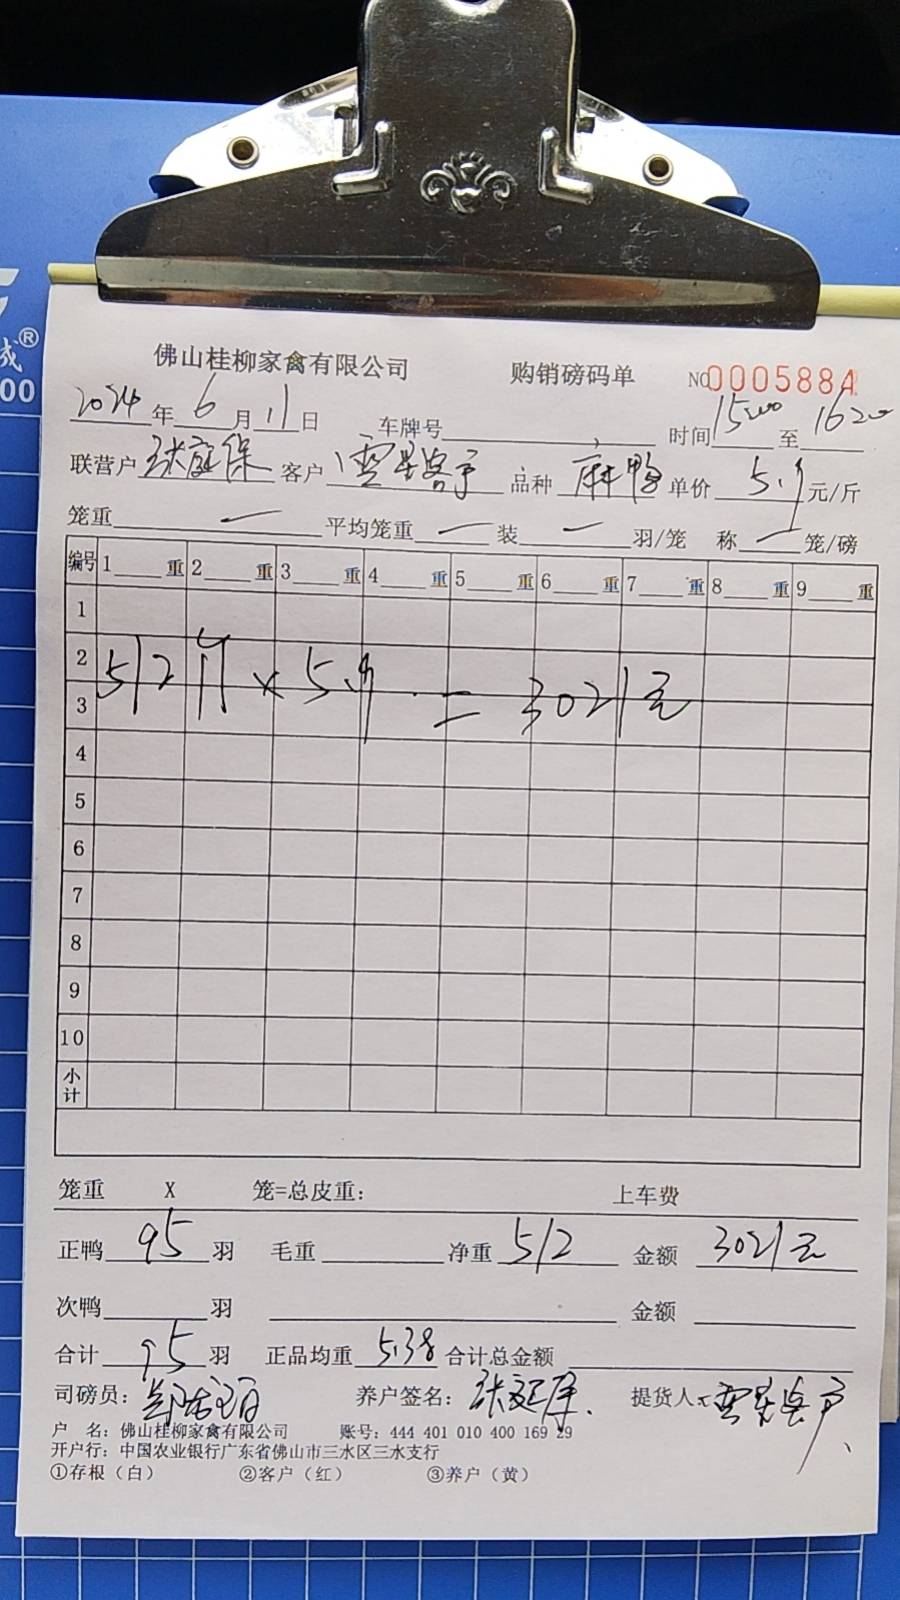 成®
00
佛山桂柳家禽有限公司 购销磅码单 NO 0005884
2024年6月11日 车牌号 时间1500至1620
联营户 张庭保 客户 零星客户 品种 麻鸭 单价 5.9 元/斤
笼重 一 平均笼重 一 装 一 羽/笼 称 一 笼/磅
编号 1 重 2 重 3 重 4 重 5 重 6 重 7 重 8 重 9 重
1
2
512斤×5.9=3021元
3
4
5
6
7
8
9
10
小计
笼重 X 笼=总皮重: 上车费
正鸭 95 羽 毛重 净重 512 金额 3021元
次鸭 羽 金额
合计 95 羽 正品均重 5.38 合计总金额
司磅员: 养户签名: 张庭保 提货人: 零星客户
户 名: 佛山桂柳家禽有限公司 账号: 444 401 010 400 169 29
开户行: 中国农业银行广东省佛山市三水区三水支行
①存根(白) ②客户(红) ③养户(黄)